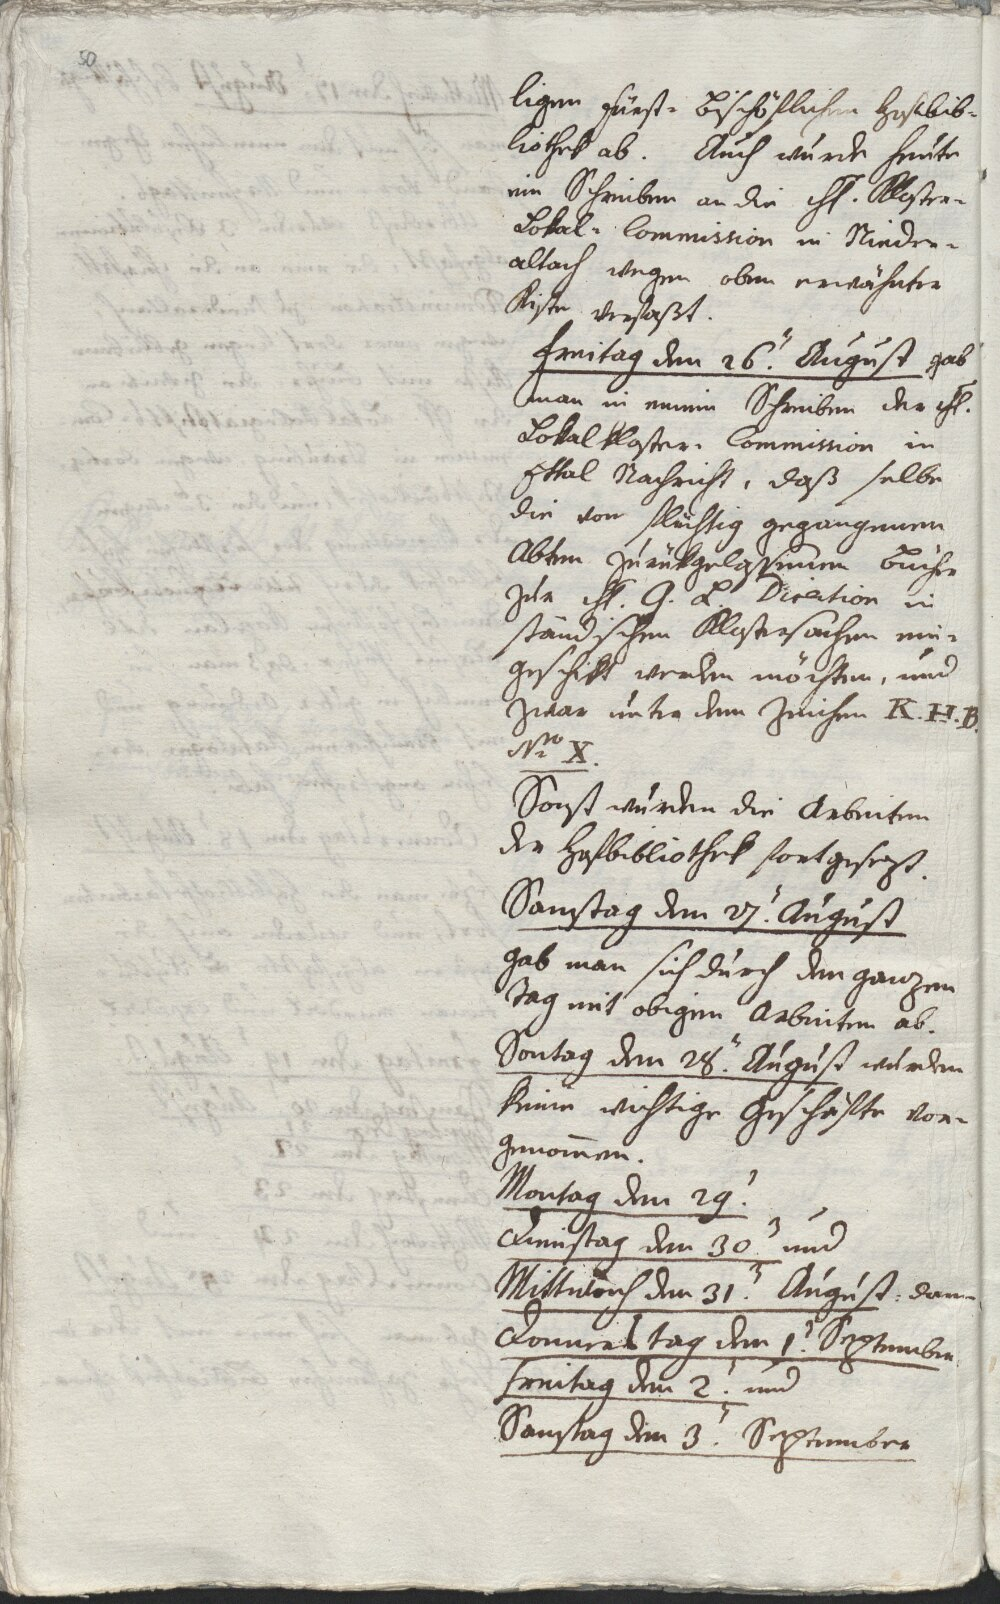 50
ligen Fürst- Bischöflichen Hofbib-
liothek ab. Auch wurde heute
ein Schreiben an die chf. Kloster-
Lokal- Commission in Nieder-
altach wegen oben erwähnter
Kiste verfaßt.
Freitag den 26. August gab
man in einem Schreiben der chf.
Lokal Kloster- Commission in
Ettal Nachricht, daß selbe
die von flüchtig gegangenen
Abten zurükgelassenen Bücher
zur chf. G. L. Direktion in
ständischen Klostersachen ein-
geschikt werden möchten, und
zwar unter dem Zeichen K. H. B.
No X.
Sonst wurden die Arbeiten
der Hofbibliothek fortgesezt.
Samstag den 27. August
gab man sich durch den ganzen
Tag mit obigen Arbeiten ab.
Sontag den 28. August wurden
keine wichtige Geschäfte vor-
genom̄en.
Montag den 29.
Dienstag den 30. und
Mittwoch den 31. August: dann
Donnerstag den 1. September
Freitag den 2. und
Samstag den 3. September